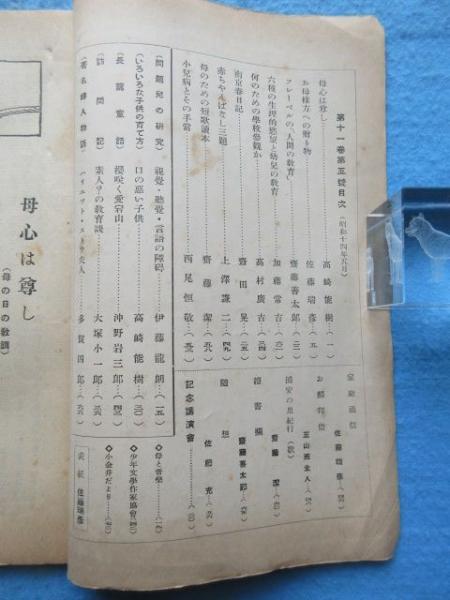 第十一卷第五號目次（昭和十四年五月）
母心は尊し 高崎能樹（一）
お母樣方への贈り物 佐藤瑞彦（五）
フレーベルの「人間の教育」 齋藤善太郎
六種の生理的慾望と幼兒の教育 加藤常吉
何のための學校參觀か 高村廣吉
南京春日記 豊田晃
赤ちやんばなし三題 上澤謙二
母のための短歌讀本 齋藤潔
小兒病とその手當 西尾恒敬
家庭通信 佐藤瑞彦
お顔拜借
浦安の里紀行（歌） 齋藤潔
讀書欄 齋藤善太郎
隨想 佐藤充
記念講演會
（問題兒の研究） 視覺・聽覺・言語の障碍 伊藤龍朗（一五）
（いろいろな子供の育て方） 口の惡い子供 高崎能樹
（長講童話） 櫻咲く愛宕山 沖野岩三郎
（訪問記） 素人？の教育談 大塚小一郎
（著名婦人物語） 多賀四郎
◇母と音樂
◇少年文學作家協會
◇小金井だより
表紙 佐藤瑞彦
母心は尊し
（母の日の教訓）